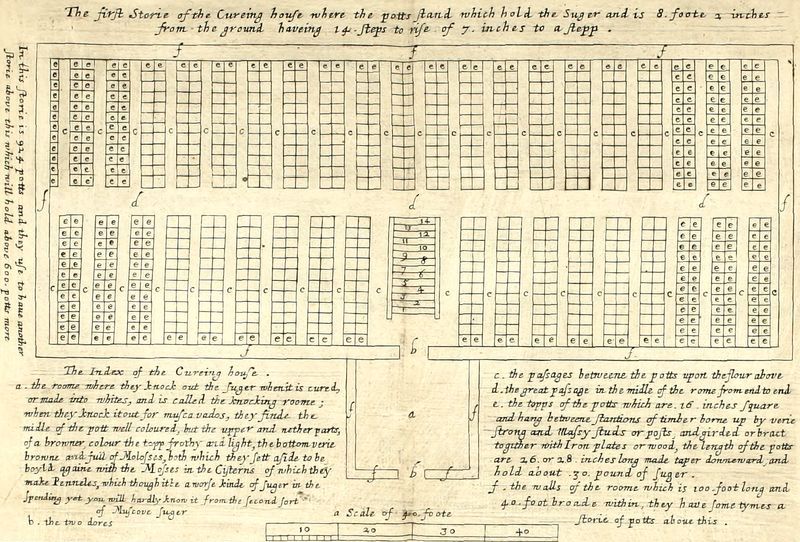 The first Storie of the Cureing house where the potts stand which hold the Suger and is 8. foote 2 inches
from the ground haveing 14. steps to rise of 7. inches to a stepp .
In this storie is 924 potts and they use to have another
storie above this which will hold above 600. potts more
f f f
c c c c c c c c c c c c c c c c c c c c
f d d d f
14
12
11
10
9
8
7
6
5
4
3
2
c c c c c c c c c c c c c c c c c c
f b f
The Index of the Cureing house .
a . the roome where they knock out the suger when it is cured,
or made into whites, and is called the knocking roome ;
when they knock it out for muscavados, they finde the
midle of the pott well coloured, but the upper and nether parts,
of a browner colour the topp frothy and light, the bottom verie
browne and full of Molosses, both which they sett aside to be
boyld againe with the Mosses in the Cisterns of which they
make Penneles, which though it be a worse kinde of suger in the
spending yet you will hardly know it from the second sort
of Muscove suger
b . the two dores
f a f
f b f
c . the passages betweene the potts upon the flour above
d . the great passage in the midle of the rome from end to end
e . the topps of the potts which are . 16 . inches square
and hang betweene stantions of timber borne up by verie
strong and Massy studs or posts, and girded or bract
together with Iron plates or wood, the length of the potts
are 26. or 28. inches long made taper downeward, and
hold about . 30 . pound of suger .
f . the walls of the roome which is 100. foot long and
40. foot broade within, they have some tymes a
storie of potts above this .
a Scale of 40. foote
10 20 30 40